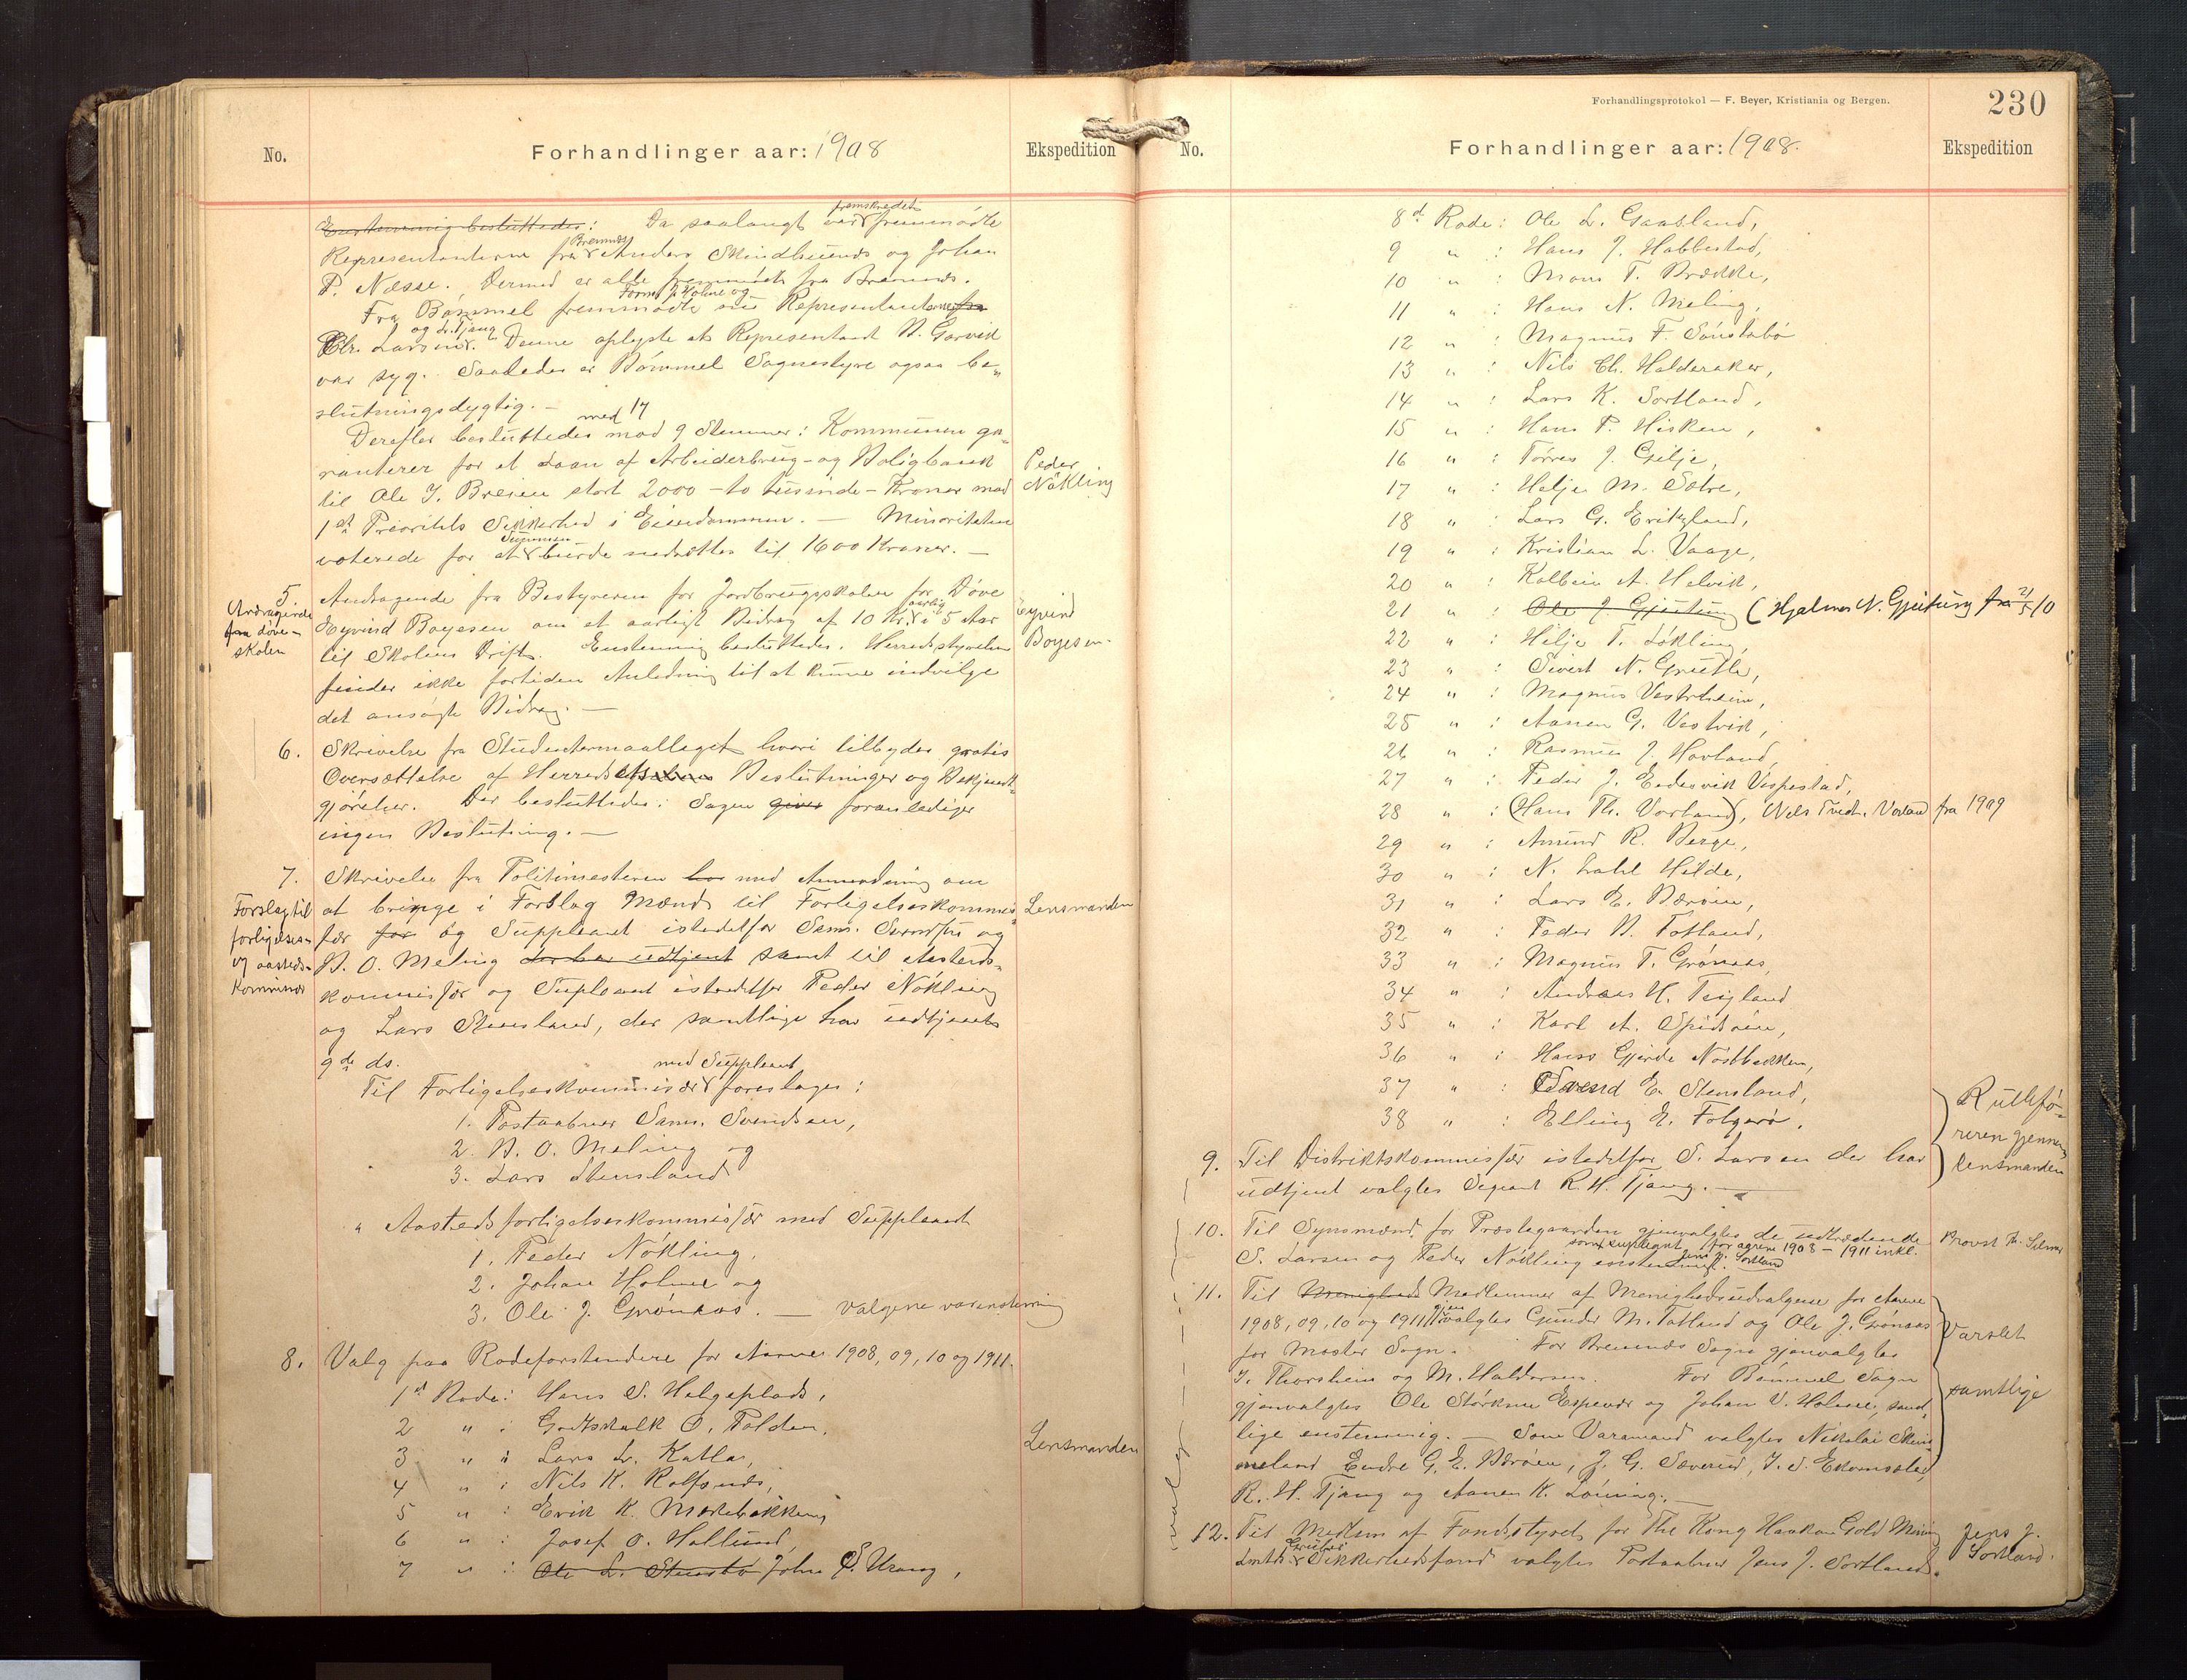 No.
Forhandlinger aar: 1908
Ekspedition
Enstemmig besluttedes: Da saalangt var fremskredet fremmødte
Representanterne fra Bremnes Anders Skimbuends og Johan
P. Næsse. Dermed er alle fremmødt fra Bremnes.
Fra Bømmel fremmødte nu Representanterne fra
Torms J. Holme og
Chr. Larsen og L. Tjong. Denne oplyste at Representant N. Gorvid
var syg. Saaledes er Bømmel Sognestyre ogsaa be-
slutningsdygtig. —
Derefter besluttedes med 17 mod 9 Stemmer: Kommunen ga-
ranterer for et Laan af Arbeiderbrug- og Boligbank
til Ole J. Breien stort 2000 - to tusinde - Kroner mod
1st Prioritets Sikkerhed i Eiendommen. — Minoriteten
voterede for at Summen burde nedsættes til 1600 Kroner. —
Peder
Nøkling
5.
Andragende
fra Døve-
skolen
Andragende fra Bestyreren for Jordbrugsskolen for Døve
Eyvind Boyesen om et aarligt Bidrag af 10 Kr. aarlig i 5 Aar
til Skolens Drift. Enstemmig besluttedes. Herredsstyrelsen
finder ikke fortiden Anledning til at kunne indvilge
det ansøgte Bidrag. —
Eyvind
Boyesen.
6. Skrivelse fra Studentermaallaget hvori tilbydes gratis
Oversættelse af Herreds Beslutninger og Bekjendt-
gjørelser. Der besluttedes: Sagen giver foranlediger
ingen Beslutning. —
7. Skrivelse fra Politimesteren har med Anmodning om
at bringe i Forslag Mænd til Forligelseskommis-
sær for og Suppleant istedetfor Sams. Svendsen og
N. O. Meling der har udtjent samt til Aasteds-
kommissær og Supleant istedetfor Peder Nøkling
og Lars Stensland, der samtlige har udtjent
9de ds.
Forslag til
forligelses-
og aasteds-
kommissær
Lensmanden
Til Forligelseskommissær med Suppleant foreslages:
1. Postaabner Sams. Svendsen,
2. N. O. Meling og
3. Lars Stensland
" Aastedsforligelseskommissær med Suppleant
1. Peder Nøkling,
2. Johan Holme og
3. Ole J. Grønaas. — Valgene var enstemmig
8. Valg paa Rodeforstandere for Aarene 1908, 09, 10 og 1911.
1st Rode: Hans S. Helgeplads,
2 " : Godtskalk O. Folden,
3 " : Lars L. Katla,
4 " : Nils K. Rolfsnes,
5 " : Erik K. Mækebakken,
6 " : Josef O. Hollund,
7 " : Ole L. Stensbø John E. Urang,
Lensmanden
Forhandlingsprotokol — F. Beyer, Kristiania og Bergen.
230
No.
Forhandlinger aar: 1908.
Ekspedition
8d Rode: Ole L. Gaasland,
9 " : Hans J. Habbestad,
10 " : Mons T. Brække,
11 " : Hans N. Meling,
12 " : Magnus F. Sønstabø
13 " : Nils Ch. Halderaker,
14 " : Lars K. Sortland,
15 " : Hans P. Hisken,
16 " : Tørres J. Gilje,
17 " : Helje M. Sætre,
18 " : Lars G. Eriksland,
19 " : Kristian L. Vaage,
20 " : Kolbein A. Helvik,
21 " : Ole J. Gjeitung (Hjalmar N. Gjeitung fra 21/5 10
22 " : Hilje T. Løkling,
23 " : Sivert N. Grutle,
24 " : Magnus Vestrheim,
25 " : Aanen G. Vestvik,
26 " : Rasmus J. Hovland,
27 " : Peder J. Eidesvik Vespestad,
28 " : (Hans Th. Vorland), Nels Tvedt. Vorland fra 1909
29 " : Amund R. Berge,
30 " : N. Dahl Hilde,
31 " : Lars E. Bærøen,
32 " : Peder N. Totland,
33 " : Magnus T. Grønaas,
34 " : Andreas H. Teigland
35 " : Karl A. Spidsøen,
36 " : Hans Gjerde Nøstbakken,
37 " : Svend E. Stensland,
38 " : Elling E. Folgerø.
Rullefø-
reren gjennem
Lensmanden
9. Til Distriktskommissær istedetfor S. Larsen der har
udtjent valgtes Sergeant R. H. Tjong. —
10. Til Synsmænd for Præstegaarden gjenvalgtes de udtrædende
S. Larsen og Peder Nøkling enstemmigt. som supleant Jens J. Sortland for aarene 1908 – 1911 inkl.
Provst
11. Til Menigheds Medlemmer af Menighedsudvalgene for Aarene
1908, 09, 10 og 1911 gjenvalgtes Gunder M. Totland og Ole J. Grønaas
for Moster Sogn. For Bremnes Sogn gjenvalgtes
T. Thorsheim og M. Haldorsen. For Bømmel Sogn
gjenvalgtes Ole Størksen Espevær og Johan V. Holme, samt-
lige enstemmig. — Som Varamænd valgtes Nikolai Skim-
meland Endre G. E. Bærøen, J. G. Sæverud, J. S. Ekornsæter,
R. H. Tjong og Aanen K. Løning. —
Varslet
samtlige
valg
12. Til Medlem af Fondsstyret for The Kong Haakon Gold Mining
Lmtds Gruber Sikkerhedsfond valgtes Postaabner Jens J. Sortland.
Jens J.
Sortland.